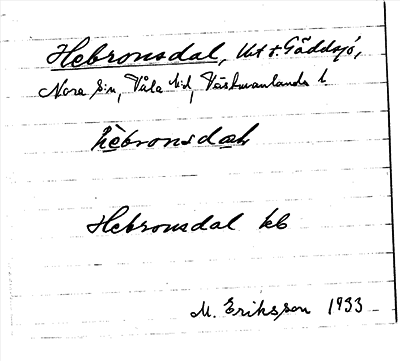 Hebronsdal, Ut t. Gäddsjö,
Nora sn, Våla hd, Västmanlands l.
hèbronsdαh
Hebronsdal kb
M. Eriksson 1933